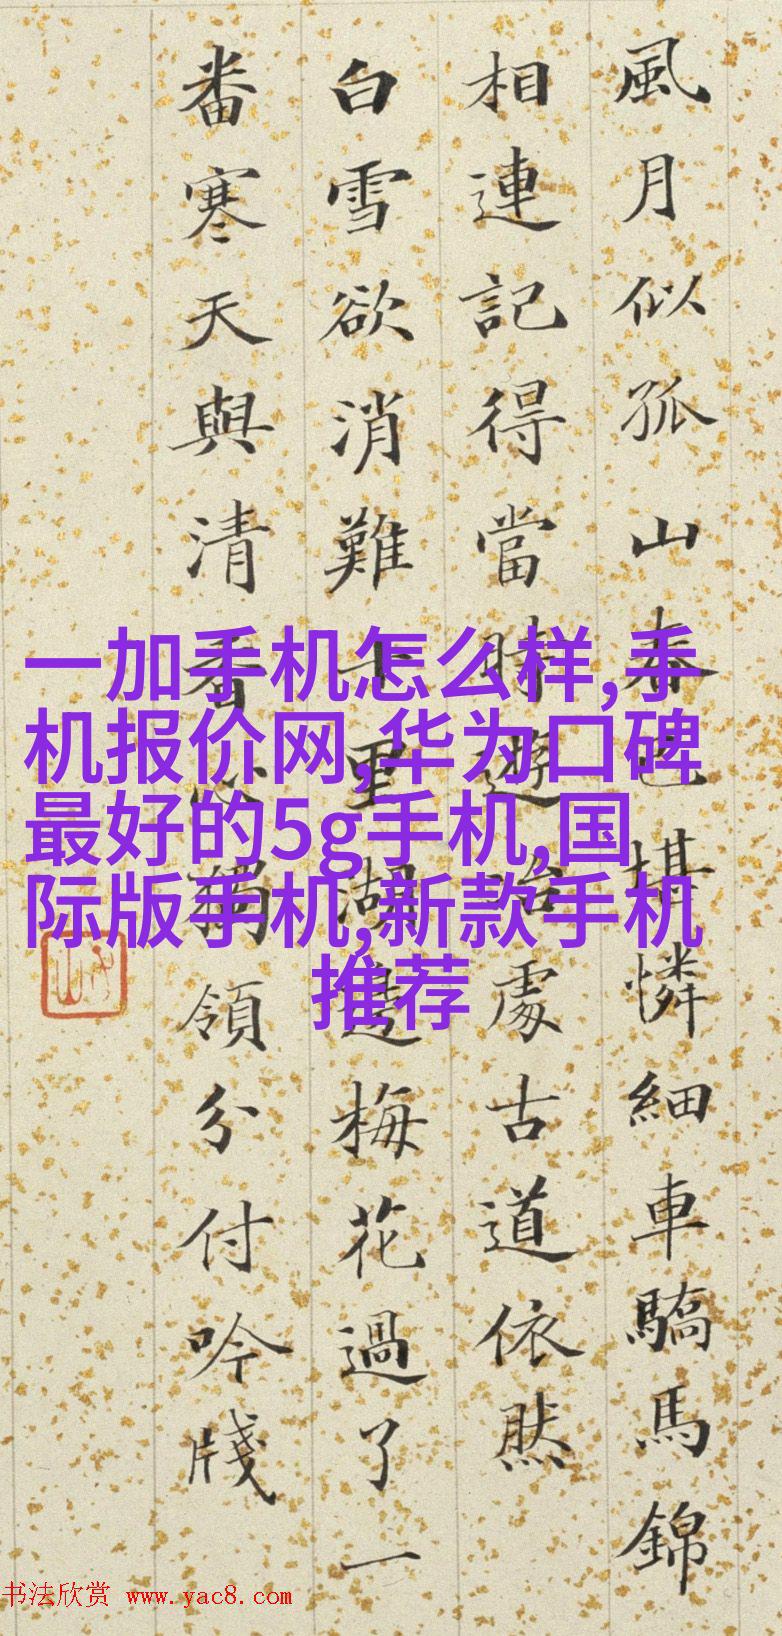 風月似孤山春也堪憐細車驕馬錦
相連記得當時遊冶處古道依然
白雪欲消難十里湖邊梅花過了一
番寒天與清香心獨領分付吟牋
一加手机怎么样,手
机报价网,华为口碑
最好的5g手机,国
际版手机,新款手机
推荐
书法欣赏 www.yac8.com